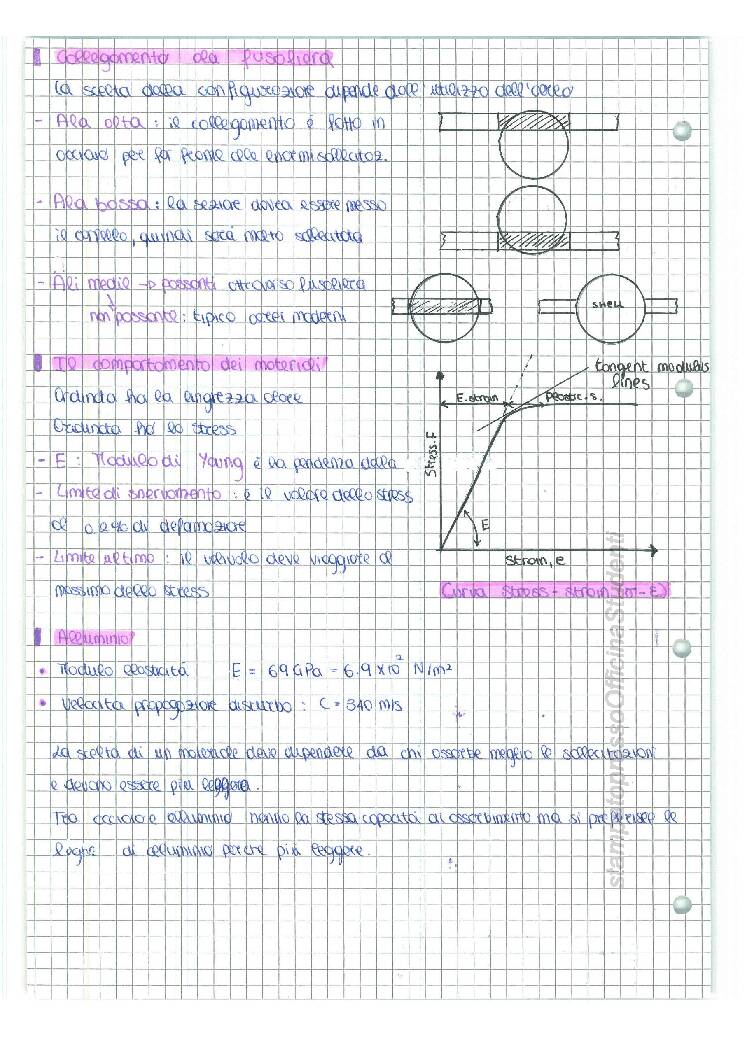 Collegamento ala fusoliera
la scelta della configurazione dipende dall'utilizzo dell'aereo
- Ala alta : il collegamento è fatto in
acciaio per far fronte alle enormi sollecitaz.
- Ala bassa : la sezione dovea essere messo
il carrello, quindi sarà molto sollecitata
- Ali medie → passanti attraverso fusoliera
non passante : tipico aerei moderni
SHELL
Il comportamento dei materiali
Ordinata ha la
Ordinata ha lo stress
- E : Modulo di Young è la pendenza della
- Limite di snervamento : è il valore dello stress
al 0.2% di deformazione
- Limite ultimo : il velivolo deve viaggiare al
massimo dello stress
tangent modulus
lines
E. strain
Plastic. s.
Stress. F
E
Strain, e
Curva stress - strain (σ - ε)
Alluminio
• Modulo elasticità E = 69 GPa = 6.9 × 10² N/m²
• Velocità propagazione disturbo : C = 340 m/s
La scelta di un materiale deve dipendere da chi assorbe meglio le sollecitazioni
e devono essere più leggera.
Tra acciaio e alluminio hanno la stessa capacità di assorbimento ma si preferisce le
leghe di alluminio perche più leggere.
stampatopressoOfficinaStudenti